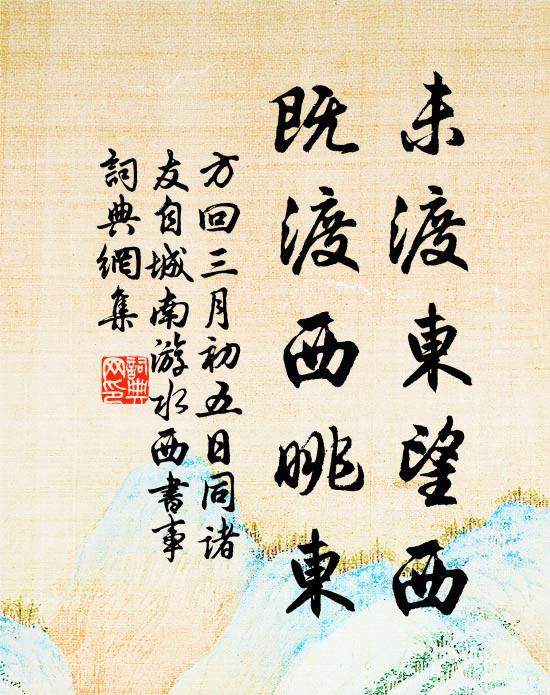 未渡東望西
既渡西眺東
方回三月初五日同諸
友自城南游水西書事
詞典網集
詞典網印